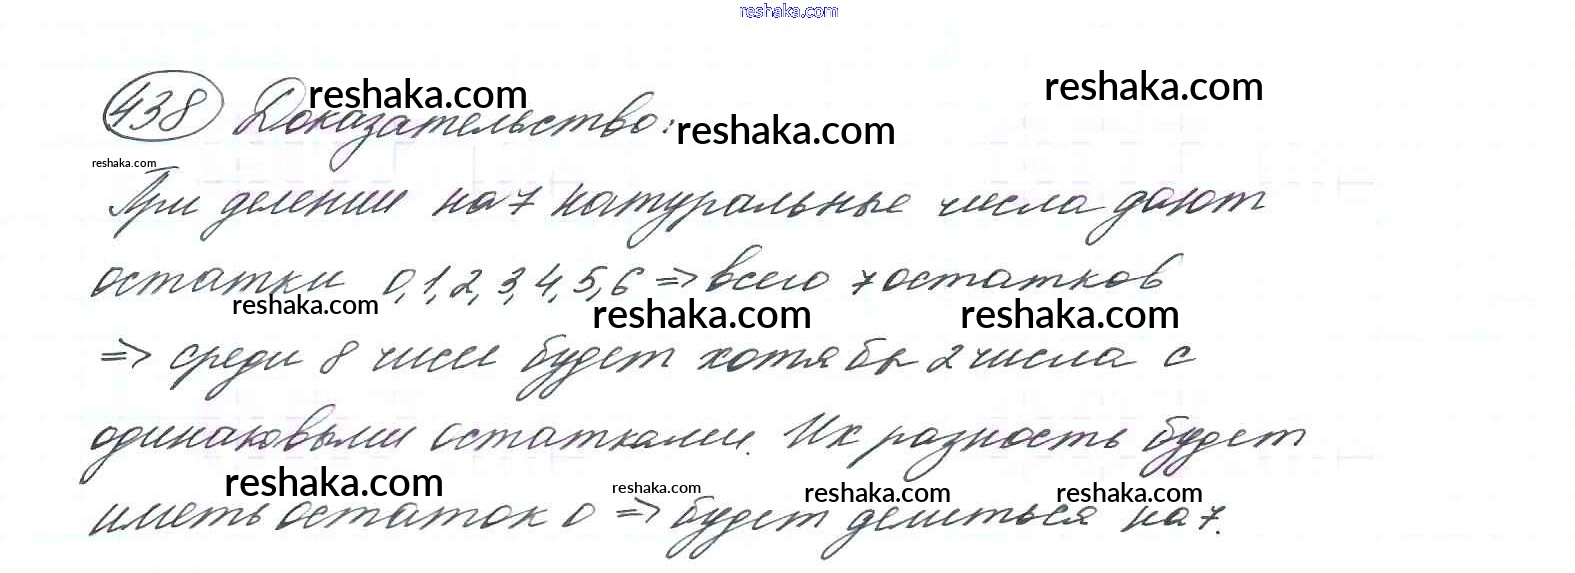 reshaka.com
438 Доказательство:
reshaka.com
reshaka.com
reshaka.com
reshaka.com
При делении на 7 натуральные числа дают
остатки 0,1,2,3,4,5,6 => всего 7 остатков
reshaka.com
reshaka.com
reshaka.com
=> среди 8 чисел будет хотя бы 2 числа с
одинаковыми остатками. Их разность будет
reshaka.com
reshaka.com
reshaka.com
reshaka.com
иметь остаток 0 => будет делиться на 7.